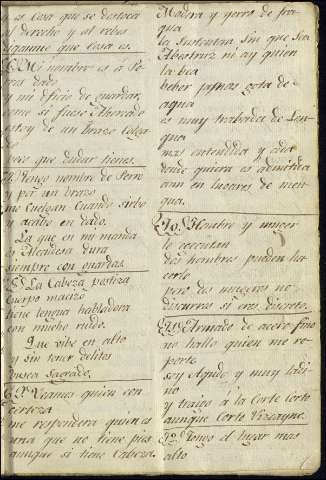 es Cosa que se destocer
al derecho y al rebes
digaume que cosa es.
mi nombre es â Pe
rros dado
y mi oficio de guardar,
como si fuese Ahorcado
estoy de un brazo Colga
do
tiene que dudar tienes.
Tengo nombre de Perro
y por un brazo
me Cuelgan Cuando sirbo
y acabo en dado.
La que en mi manda
es Alcaldesa dura
siempre con guardas.
La Cabeza postiza
Cuerpo macizo
tiene lengua habladora
con mucho ruido.
Que vibe en alto
y sin tener delitos
busca Sagrado.
Veamos quien con
certeza
me respondera quien es
una que no tiene pies
aunque si tiene Cabeza.
Madera y yerro de fra
gua
la Sustentan sin que sea
Abestruz ni ay quien
la bea
beber jamas gota de
agua
es muy trabada de Len
gua
mas entendida y clara
donde quiera es admitida
aun en lugares de men
gua.
70. Hombre y muger
lo cecentan
dos hombres pueden ha
cerlo
pero dos mugeres no
discurras si eres discreto.
71. Armado de acero fino
no hallo quien me re
porte
soy Agudo y muy ladi
no
y traigo â la Corte Corto
aunque Corto Vizcayno.
72. Tengo el lugar mas
alto